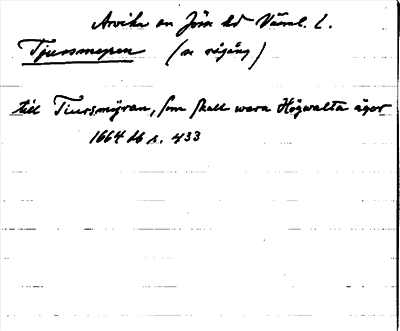 Arvika sn Jöss hd Värml. l.
Tjursmossen (se rågång)
till Tiursmÿran, som skall wara Högwalta ägor
1664 db s. 433